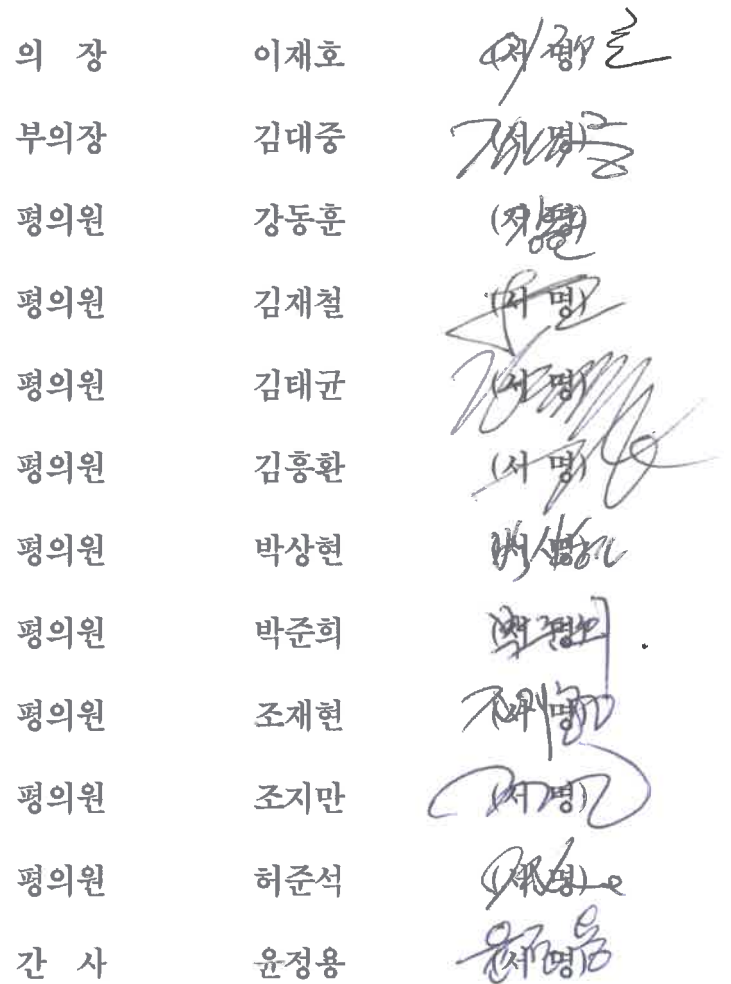 의 장 이재호 (서 명)
부의장 김대중 (서 명)
평의원 강동훈 (서 명)
평의원 김재철 (서 명)
평의원 김태균 (서 명)
평의원 김흥환 (서 명)
평의원 박상현 (서 명)
평의원 박준희 (서 명)
평의원 조재현 (서 명)
평의원 조지만 (서 명)
평의원 허준석 (서 명)
간 사 윤정용 (서 명)